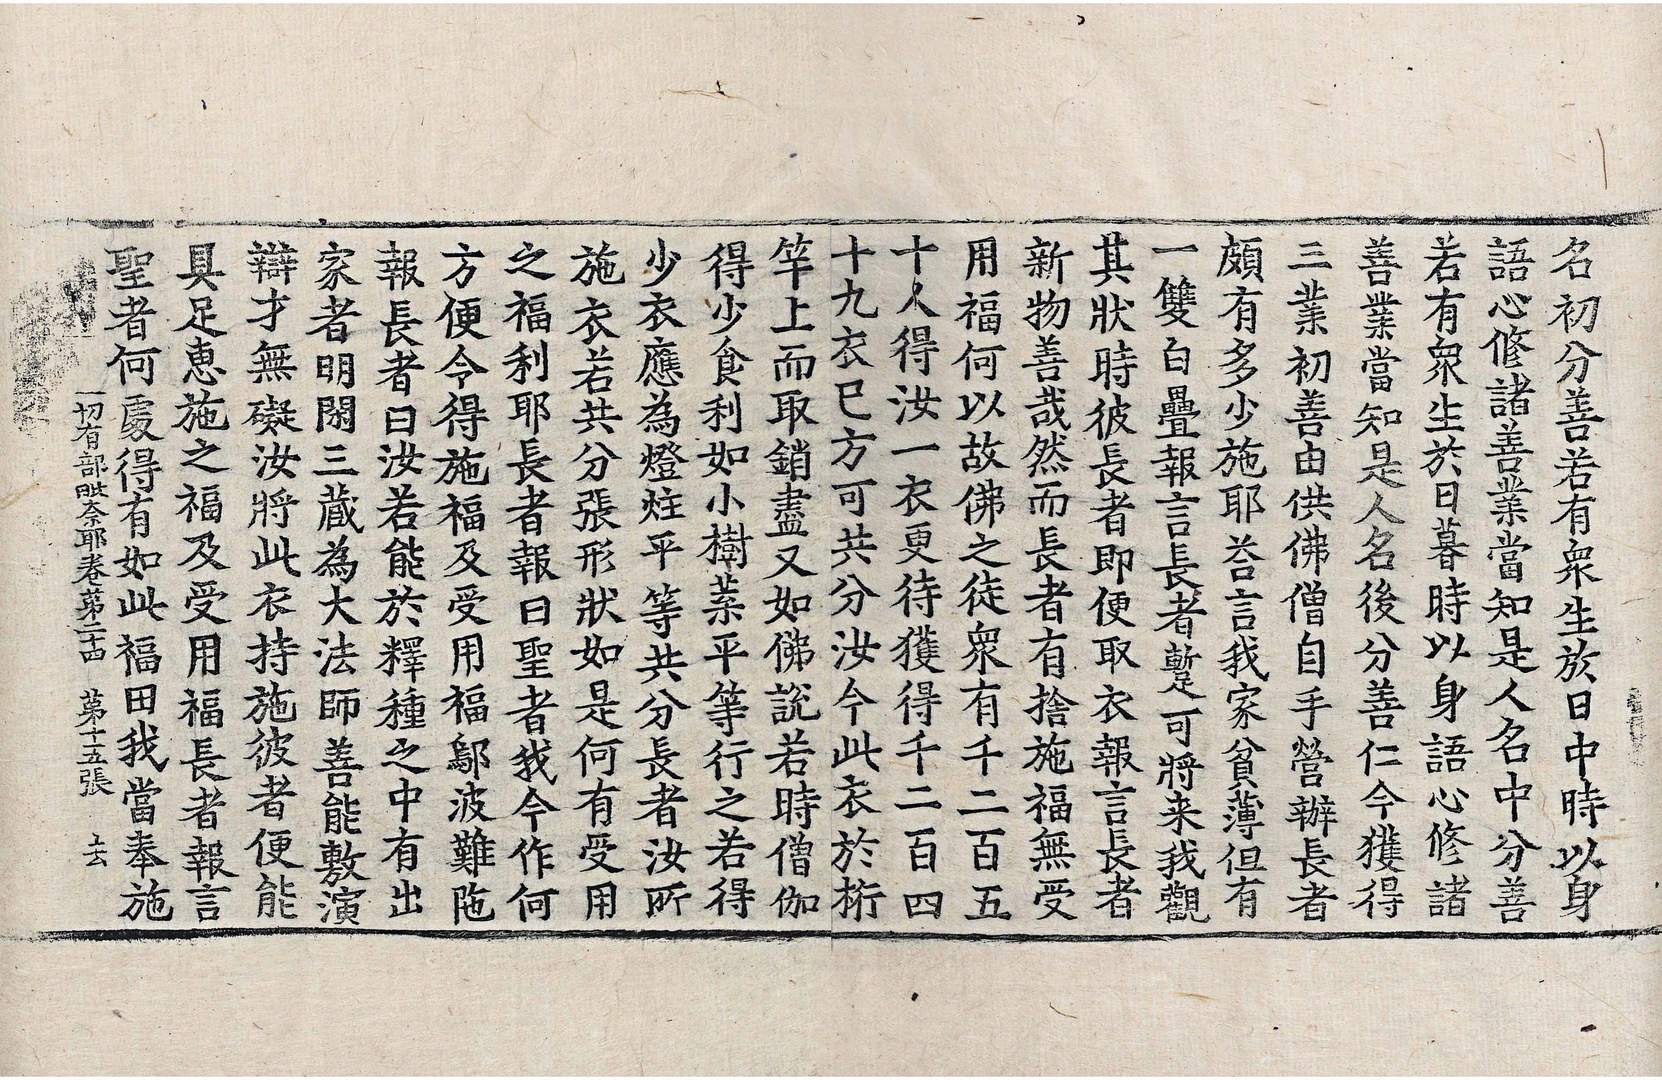 名初分善若有衆生於日中時以身
語心修諸善業當知是人名中分善
若有衆生於日暮時以身語心修諸
善業當知是人名後分善仁今獲得
三業初善由供佛僧自手營辦長者
頗有多少施耶荅言我家貧薄但有
一雙白疊報言長者蹔可將来我觀
其狀時彼長者即便取衣報言長者
新物善哉然而長者有捨施福無受
用福何以故佛之徒衆有千二百五
十人得汝一衣更待獲得千二百四
十九衣已方可共分汝今此衣於桁
竿上而取銷盡又如佛說若時僧伽
得少食利如小樹葉平等行之若得
少衣應為燈炷平等共分長者汝所
施衣若共分張形狀如是何有受用
之福利耶長者報曰聖者我今作何
方便令得施福及受用福鄔波難陁
報長者曰汝若能於釋種之中有出
家者明閑三蔵為大法師善能敷演
辯才無礙汝將此衣持施彼者便能
具足恵施之福及受用福長者報言
聖者何處得有如此福田我當奉施
一切有部毗奈耶卷第二十四 第十五張 去